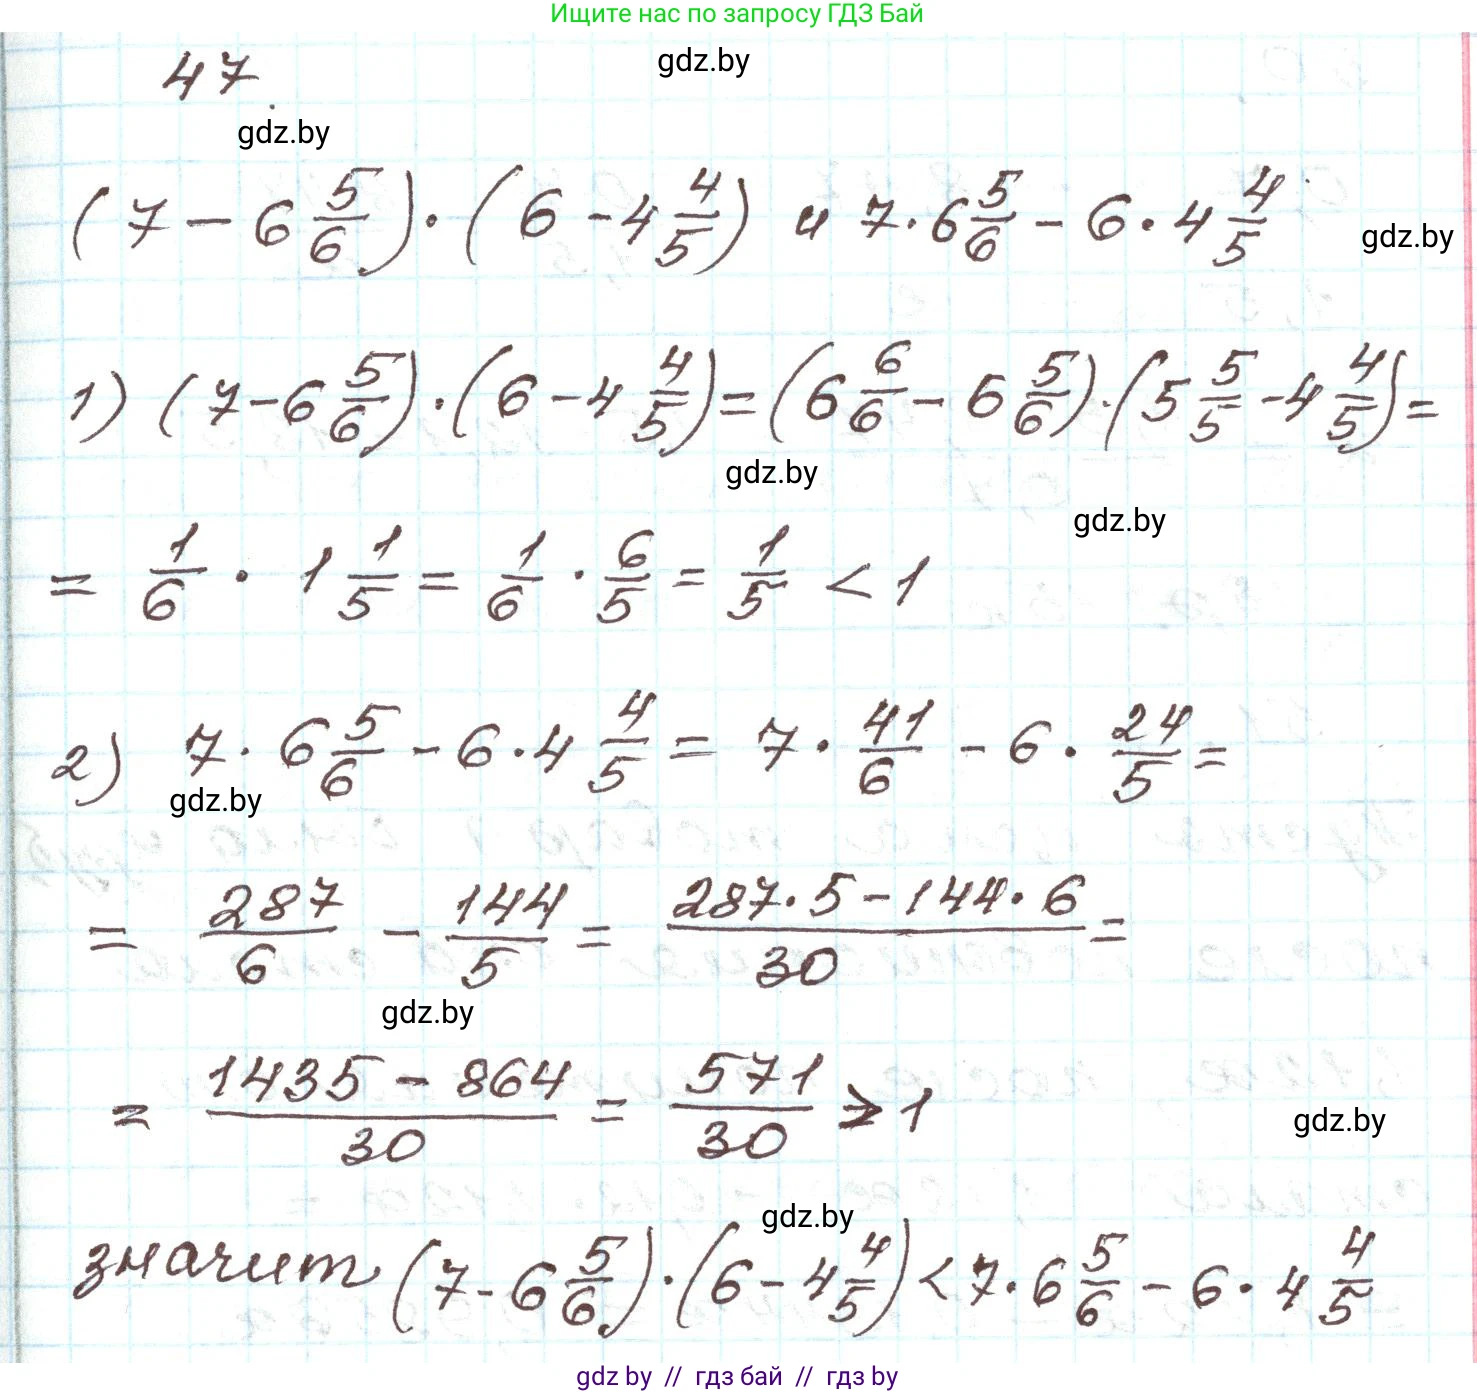 Ищите нас по запросу ГДЗ Бай
47.
gdz.by
gdz.by
(7 - 6 5/6) · (6 - 4 4/5) и 7 · 6 5/6 - 6 · 4 4/5
gdz.by
1) (7 - 6 5/6) · (6 - 4 4/5) = (6 6/6 - 6 5/6) · (5 5/5 - 4 4/5) =
gdz.by
gdz.by
= 1/6 · 1 1/5 = 1/6 · 6/5 = 1/5 < 1
2) 7 · 6 5/6 - 6 · 4 4/5 = 7 · 41/6 - 6 · 24/5 =
gdz.by
= 287/6 - 144/5 = (287 · 5 - 144 · 6)/30 =
gdz.by
= (1435 - 864)/30 = 571/30 > 1
gdz.by
gdz.by
значит (7 - 6 5/6) · (6 - 4 4/5) < 7 · 6 5/6 - 6 · 4 4/5
gdz by // гдз бай // гдз by